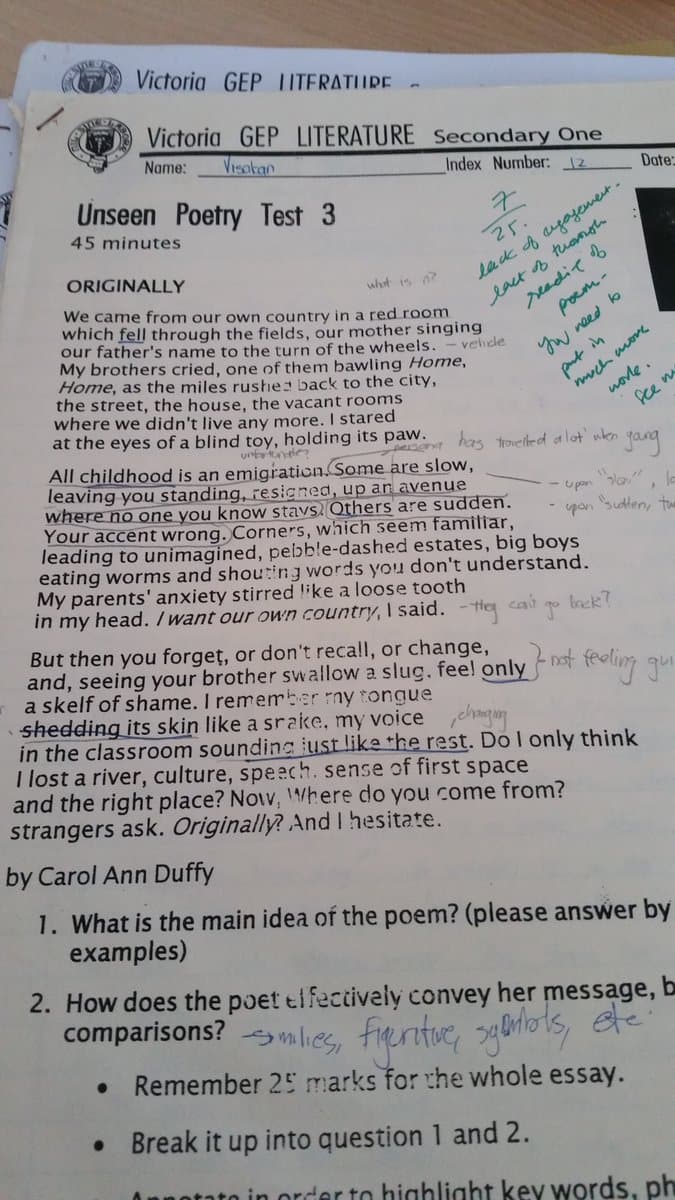 Victoria GEP LITERATURE
Victoria GEP LITERATURE Secondary One
Name: Visakan Index Number: 12 Date:
Unseen Poetry Test 3
45 minutes
7
25.
lack of engagement.
lack of thorough
reading of
poem.
You need to
put in
much more
work.
See
ORIGINALLY
what is it?
We came from our own country in a red room
which fell through the fields, our mother singing
our father's name to the turn of the wheels. - vehicle
My brothers cried, one of them bawling Home,
Home, as the miles rushed back to the city,
the street, the house, the vacant rooms
where we didn't live any more. I stared
at the eyes of a blind toy, holding its paw.
persona has travelled alot when young
All childhood is an emigration. Some are slow,
leaving you standing, resigned, up an avenue - upon "slow",
where no one you know stays. Others are sudden. - upon "sudden,
Your accent wrong. Corners, which seem familiar,
leading to unimagined, pebble-dashed estates, big boys
eating worms and shouting words you don't understand.
My parents' anxiety stirred like a loose tooth
in my head. I want our own country, I said. - they can't go back?
But then you forget, or don't recall, or change,
and, seeing your brother swallow a slug, feel only - not feeling
a skelf of shame. I remember my tongue
shedding its skin like a snake, my voice , changing
in the classroom sounding just like the rest. Do I only think
I lost a river, culture, speech, sense of first space
and the right place? Now, Where do you come from?
strangers ask. Originally? And I hesitate.
by Carol Ann Duffy
1. What is the main idea of the poem? (please answer by
examples)
2. How does the poet effectively convey her message, b
comparisons? → similies, figuritive, symbols, etc
• Remember 25 marks for the whole essay.
• Break it up into question 1 and 2.
Annotate in order to highlight key words, ph